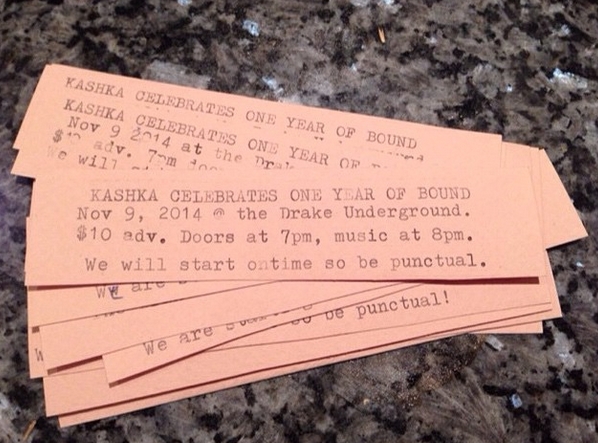 KASHKA CELEBRATES ONE YEAR OF BOUND
KASHKA CELEBRATES ONE YEAR OF
Nov 9 2014 at the Drake
adv. 7pm
We will
KASHKA CELEBRATES ONE YEAR OF BOUND
Nov 9, 2014 @ the Drake Underground.
$10 adv. Doors at 7pm, music at 8pm.
We will start ontime so be punctual.
We are
We are so be punctual!